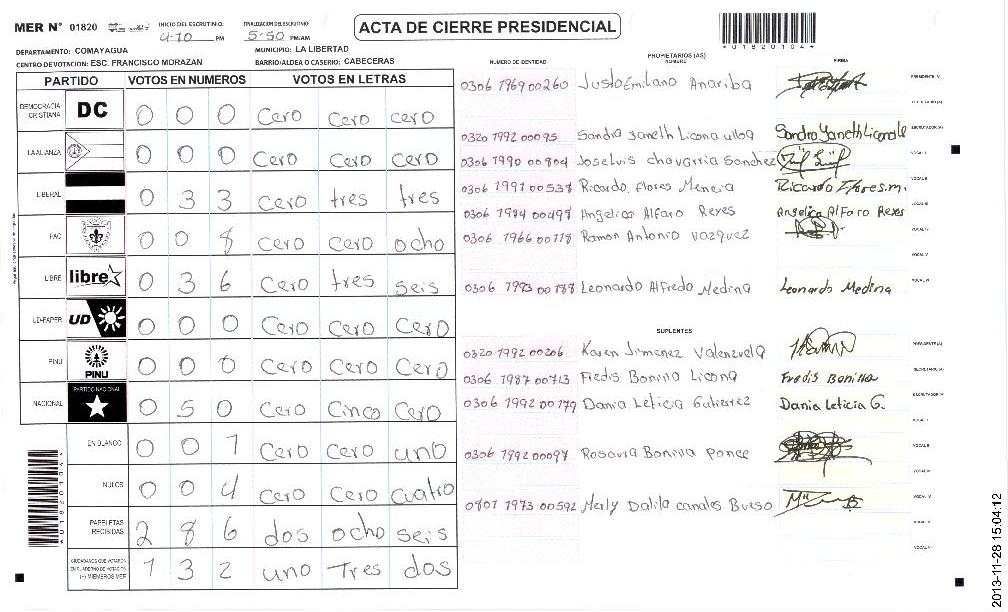 MER N° 01820
INICIO DEL ESCRUTINIO: 4:10 PM
FINALIZACION DEL ESCRUTINIO: 5:50 PM/AM
ACTA DE CIERRE PRESIDENCIAL
*018201044*
DEPARTAMENTO: COMAYAGUA
MUNICIPIO: LA LIBERTAD
CENTRO DE VOTACION: ESC. FRANCISCO MORAZAN
BARRIO/ALDEA O CASERIO: CABECERAS
PARTIDO VOTOS EN NUMEROS VOTOS EN LETRAS
DEMOCRACIA CRISTIANA DC 0 0 0 Cero Cero cero
LA ALIANZA 0 0 0 Cero Cero Cero
LIBERAL 0 3 3 Cero tres tres
PAC 0 0 8 Cero Cero ocho
LIBRE libre 0 3 6 Cero tres seis
UD-FAPER UD 0 0 0 Cero Cero Cero
PINU PINU 0 0 0 Cero Cero Cero
NACIONAL PARTIDO NACIONAL 0 5 0 Cero Cinco Cero
EN BLANCO 0 0 1 Cero Cero uno
NULOS 0 0 4 Cero Cero Cuatro
PAPELETAS RECIBIDAS 2 8 6 dos ocho seis
CIUDADANOS QUE VOTARON EN CUADERNO DE VOTACION (+) MIEMBROS MER 1 3 2 uno Tres dos
NUMERO DE IDENTIDAD
PROPIETARIOS (AS)
NOMBRE
FIRMA
0306 1969 00260 Justo Emilano Anariba PRESIDENTE (A)
SECRETARIO (A)
0320 1992 00095 Sandra Janeth Licona Sandra Yaneth Licona ESCRUTADOR (A)
0306 1990 00804 Joseluis chavarria Sanchez VOCAL I
0306 1991 00538 Ricardo Flores Ricardo Flores m. VOCAL II
0306 1994 00498 Angelica Alfaro Reyes Angelica Alfaro Reyes VOCAL III
0306 1966 00118 Ramon Antonio vazquez VOCAL IV
VOCAL V
0306 1993 00188 Leonardo Alfredo Medina Leonardo Medina VOCAL VI
SUPLENTES
0320 1992 00206 Karen Jimenez Valenzuela PRESIDENTE (A)
0306 1987 00713 Fredis Bonilla Licona Fredis Bonilla SECRETARIO (A)
0306 1992 00179 Dania Leticia Gutierrez Dania Leticia G. ESCRUTADOR (A)
VOCAL I
0306 1992 00097 Rosaura Bonilla Ponce VOCAL II
VOCAL III
0801 1973 00592 Merly Dalila canales Bueso VOCAL IV
VOCAL V
VOCAL VI
*018201044*
2013-11-28 15:04:12